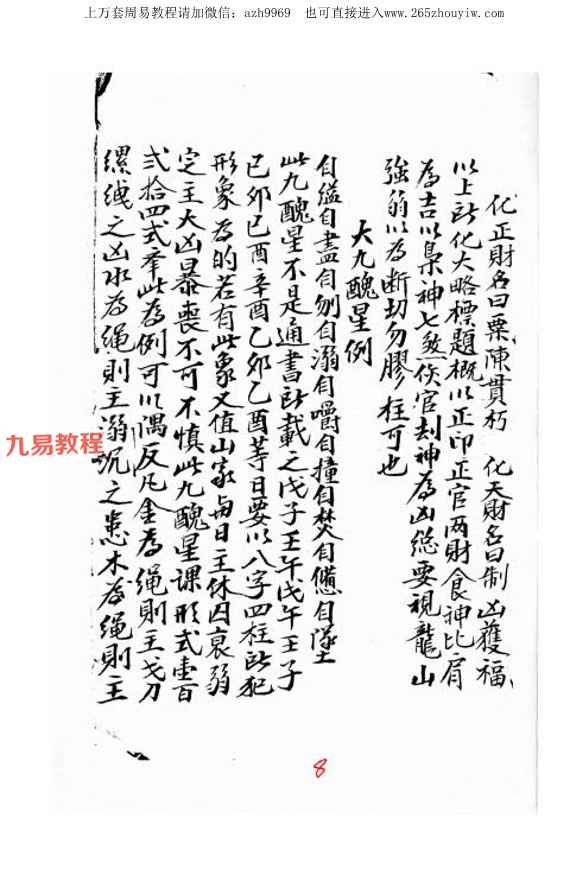 上万套周易教程请加微信：azh9969 也可直接进入www.265zhouyiw.com
化正財名曰粟陳貫朽 化天財名曰制凶獲福
以上所化大略標題概以正印正官兩財食神比肩
為吉以梟神七煞伤官刦神為凶總要視龍山
強弱以為断切勿膠柱可也
大九醜星例
自縊自盡自刎自溺自嚼自撞自焚自憊自墜
此九醜星不是通書所載之戊子壬午戊午壬子
己卯己酉辛酉乙卯乙酉等日要以八字四柱所犯
形象為的若有此象又值山家與日主休囚衰弱
定主大凶暴喪不可不慎此九醜星課形式壹百
弍拾四式举此為例可以隅反凡金為绳則主戈刀
縲絏之凶水為绳則主溺沉之患木為绳則主
九易教程
8